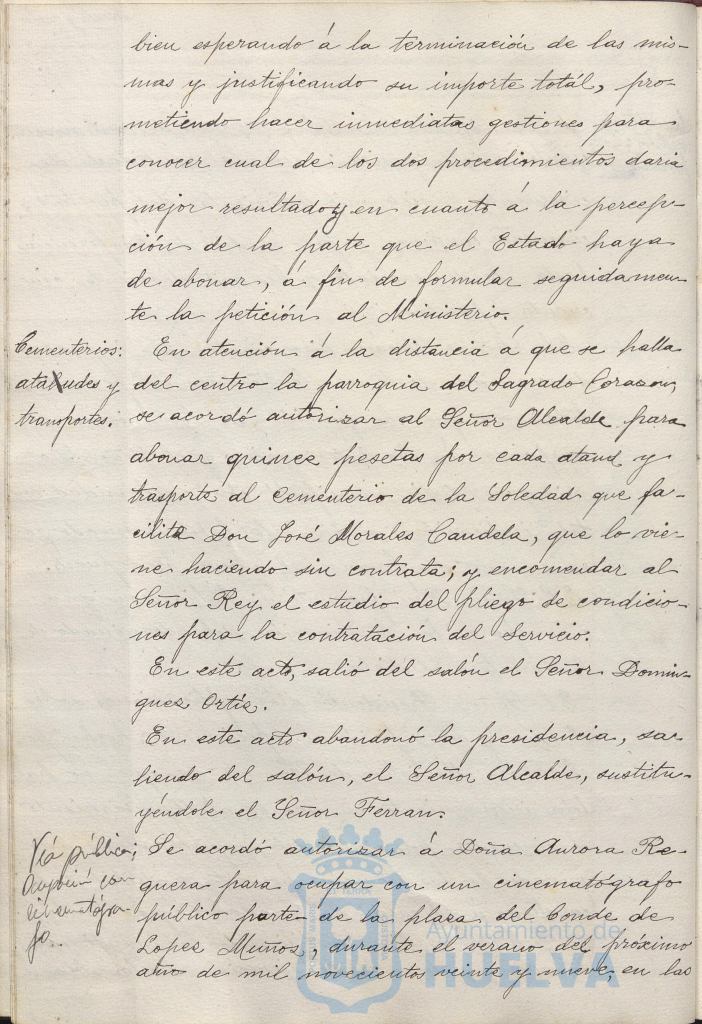 bien esperando á la terminación de las mis-
mas y justificando su importe totál, pro-
metiendo hacer inmediatas gestiones para
conocer cual de los dos procedimientos daria
mejor resultado y en cuanto á la percep-
ción de la parte que el Estado haya
de abonar, á fin de formular seguidamen-
te la petición al Ministerio.
Cementerios:
ataudes y
transportes.
En atención á la distancia á que se halla
del centro la parroquia del Sagrado Corazon,
se acordó autorizar al Señor Alcalde para
abonar quince pesetas por cada ataud y
trasporte al Cementerio de la Soledad que fa-
cilite Don José Morales Candela, que lo vie-
ne haciendo sin contrata; y encomendar al
Señor Rey el estudio del pliego de condicio-
nes para la contratación del Servicio.
En este acto, salió del salón el Señor Domin-
guez Ortíz.
En este acto abandonó la presidencia, sa-
liendo del salón, el Señor Alcalde, sustitu-
yéndole el Señor Ferran.
Viá pública;
con
cinematógra-
fo.
Se acordó autorizar á Doña Aurora Re-
quera para ocupar con un cinematógrafo
público parte de la plaza del Conde de
Lopez Muños, durante el verano del próximo
año de mil novecientos veinte y nueve, en las
Ayuntamiento de
HUELVA